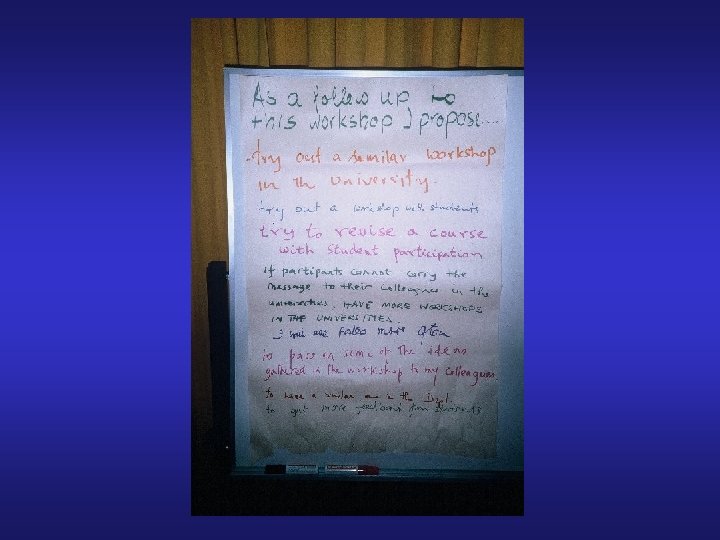 As a follow up to
this workshop I propose....
-try out a similar workshop
in the university.
-try out a workshop with students
try to revise a course
with student participation
if participants cannot carry the
message to their colleagues in the
universities, HAVE MORE WORKSHOPS
IN THE UNIVERSITIES.
I use more often
to pass on some of the ideas
gathered in the workshop to my colleagues.
to have a similar one in the
to get more feedback from students